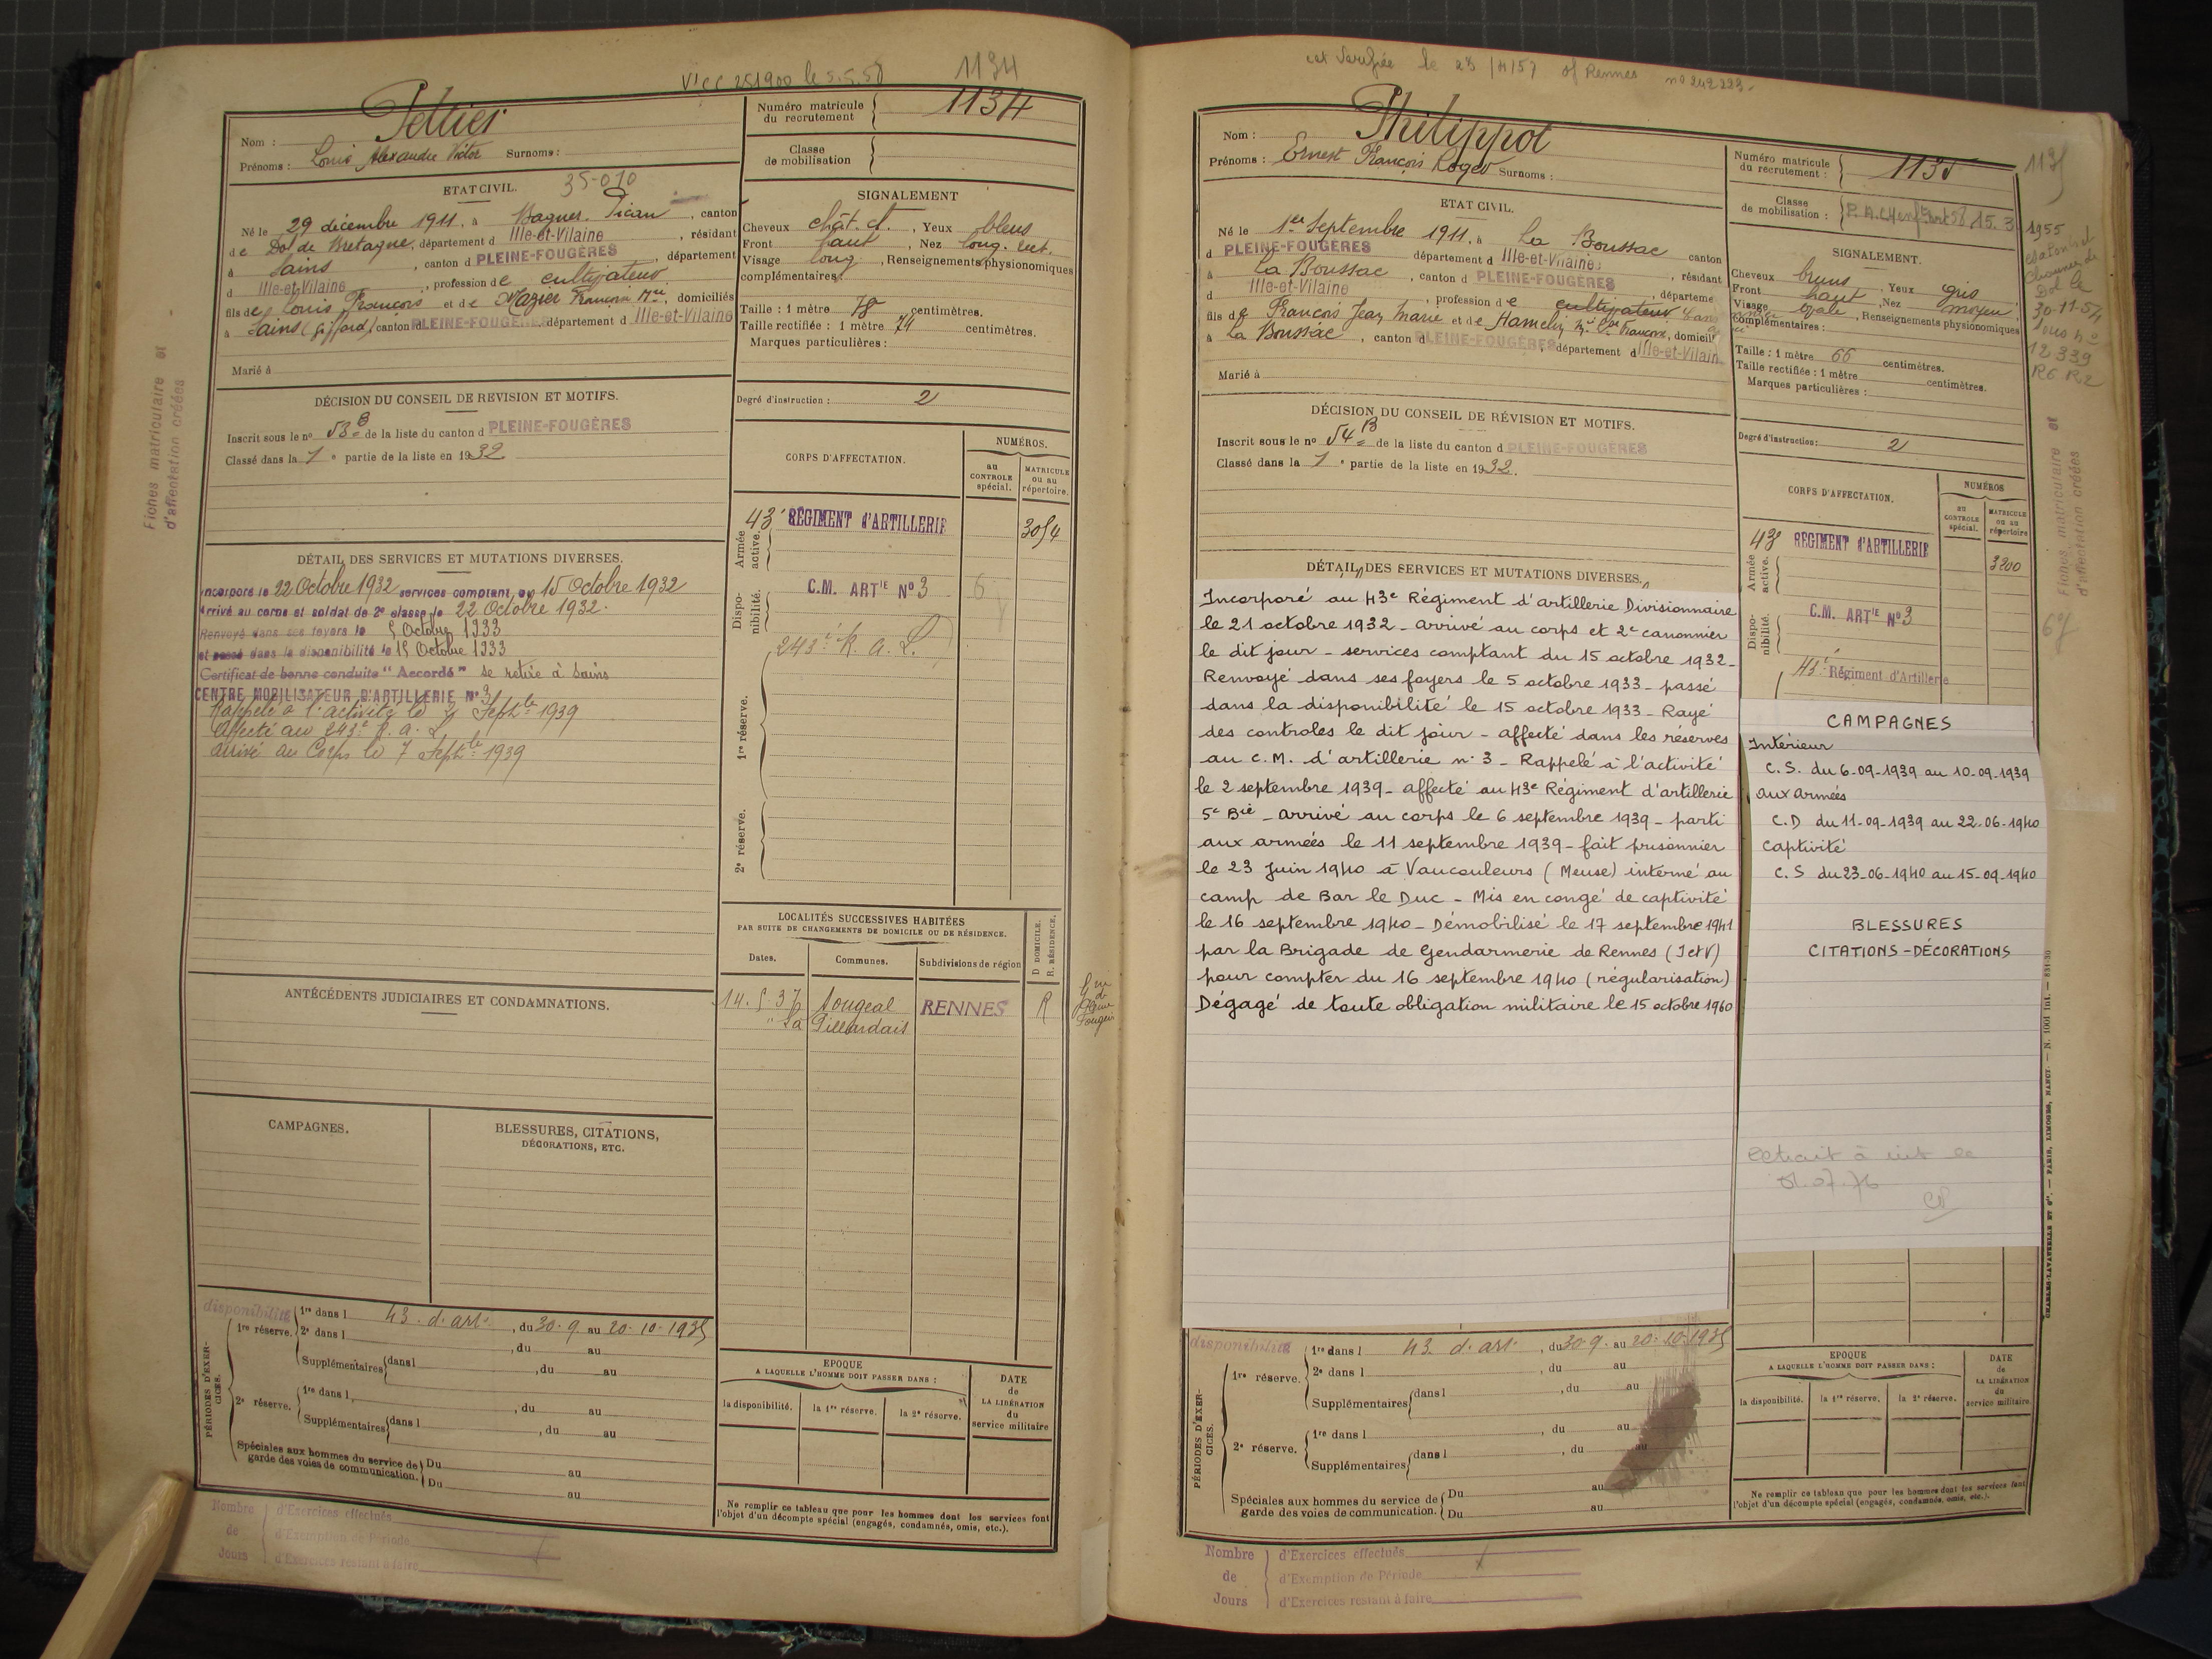 VICC 251900 le 5.5.58
1134
Nom : Pellier
Prénoms : Louis Alexandre Victor Surnoms :
Numéro matricule du recrutement 1134
Classe de mobilisation
ETAT CIVIL. 35-010
Né le 29 décembre 1911, à Baguer-Pican, canton
de Dol de Bretagne, département d Ille-et-Vilaine, résidant
à Sains, canton d PLEINE-FOUGÈRES, département
d Ille-et-Vilaine, profession de cultivateur
fils de Louis François et de Mazier Françoise Mie, domiciliés
à Sains (Giffard) canton PLEINE-FOUGÈRES département d Ille-et-Vilaine
Marié à
SIGNALEMENT
Cheveux chât. cl., Yeux bleus
Front haut, Nez long. rect.
Visage long, Renseignements physionomiques
complémentaires :
Taille : 1 mètre 78 centimètres.
Taille rectifiée : 1 mètre 74 centimètres.
Marques particulières :
Degré d'instruction : 2
DÉCISION DU CONSEIL DE REVISION ET MOTIFS.
Inscrit sous le nº 53 B de la liste du canton d PLEINE-FOUGÈRES
Classé dans la 1e partie de la liste en 1932
CORPS D'AFFECTATION.
NUMÉROS.
au CONTROLE spécial.
MATRICULE ou au répertoire.
Armée active.
43e RÉGIMENT d'ARTILLERIE 3054
Disponibilité.
C.M. ARTIE Nº 3 6
243e R. a. L.
1re réserve.
2e réserve.
DÉTAIL DES SERVICES ET MUTATIONS DIVERSES.
Incorporé le 22 Octobre 1932 services comptant du 15 Octobre 1932
Arrivé au corps et soldat de 2e classe le 22 Octobre 1932.
Renvoyé dans ses foyers le 5 Octobre 1933
et passé dans la disponibilité le 15 Octobre 1933
Certificat de bonne conduite "Accordé" se retire à Sains
CENTRE MOBILISATEUR D'ARTILLERIE Nº 3
Rappelé à l'activité le 2 Septbre 1939
Affecté au 243e R. a. L.
arrivé au Corps le 7 Septbre 1939
Fiches matriculaire et
d'affectation créées
LOCALITÉS SUCCESSIVES HABITÉES
PAR SUITE DE CHANGEMENTS DE DOMICILE OU DE RÉSIDENCE.
Dates.
Communes.
Subdivisions de région
D DOMICILE.
R. RÉSIDENCE.
14. 5 37 Vougeal RENNES R
" La Pillardais
ANTÉCÉDENTS JUDICIAIRES ET CONDAMNATIONS.
CAMPAGNES.
BLESSURES, CITATIONS,
DÉCORATIONS, ETC.
PÉRIODES D'EXERCICES.
disponibilité 1re dans l 43. d'art., du 30.9 au 20-10-1935
1re réserve. 2e dans l, du au
Supplémentaires dans l, du au
2e réserve. 1re dans l, du au
Supplémentaires dans l, du au
Spéciales aux hommes du service de garde des voies de communication. Du au
Du au
EPOQUE
A LAQUELLE L'HOMME DOIT PASSER DANS :
la disponibilité.
la 1re réserve.
la 2e réserve.
DATE
de
LA LIBÉRATION
du
service militaire
Ne remplir ce tableau que pour les hommes dont les services font
l'objet d'un décompte spécial (engagés, condamnés, omis, etc.).
Nombre de Jours
d'Exercices effectués
d'Exemption de Période
d'Exercices restant à faire
le 23/4/57 Rennes nº 242223.
Nom : Philippot
Prénoms : Ernest François Roger Surnoms :
Numéro matricule du recrutement : 1135
1135
Classe de mobilisation : 15.3.1955
ETAT CIVIL.
Né le 1er Septembre 1911, à La Boussac canton
d PLEINE-FOUGÈRES département d Ille-et-Vilaine, résidant
à La Boussac, canton d PLEINE-FOUGÈRES, départeme
d Ille-et-Vilaine, profession de cultivateur
fils de François Jean Marie et de Hamelin, domicil
à La Boussac, canton d PLEINE-FOUGÈRES département d Ille-et-Vilain
Marié à
SIGNALEMENT.
Cheveux bruns, Yeux gris
Front haut, Nez moyen
Visage ovale, Renseignements physionomiques
complémentaires :
Taille : 1 mètre 66 centimètres.
Taille rectifiée : 1 mètre centimètres.
Marques particulières :
Degré d'instruction : 2
Dol le
30-11-54
sous nº
12339
R6 R2
DÉCISION DU CONSEIL DE RÉVISION ET MOTIFS.
Inscrit sous le nº 54 B de la liste du canton d PLEINE-FOUGÈRES
Classé dans la 1e partie de la liste en 1932.
CORPS D'AFFECTATION.
NUMÉROS
au CONTROLE spécial.
MATRICULE ou au répertoire
Armée active.
43e RÉGIMENT d'ARTILLERIE 3200
Disponibilité.
C.M. ARTIE Nº 3
43e Régiment d'Artillerie
Fiches matriculaire et
d'affectation créées
DÉTAIL DES SERVICES ET MUTATIONS DIVERSES.
Incorporé au 43e Régiment d'artillerie Divisionnaire
le 21 octobre 1932 - arrivé au corps et 2e canonnier
le dit jour - services comptant du 15 octobre 1932 -
Renvoyé dans ses foyers le 5 octobre 1933 - passé
dans la disponibilité le 15 octobre 1933 - Rayé
des controles le dit jour - affecté dans les réserves
au C.M. d'artillerie n° 3 - Rappelé à l'activité
le 2 septembre 1939 - affecté au 43e Régiment d'artillerie
5e Bie - arrivé au corps le 6 septembre 1939 - parti
aux armées le 11 septembre 1939 - fait prisonnier
le 23 Juin 1940 à Vaucouleurs (Meuse) interné au
camp de Bar le Duc - Mis en congé de captivité
le 16 septembre 1940 - Démobilisé le 17 septembre 1941
par la Brigade de Gendarmerie de Rennes (I et V)
pour compter du 16 septembre 1940 (régularisation)
Dégagé de toute obligation militaire le 15 octobre 1960
CAMPAGNES
Intérieur
C.S. du 6-09-1939 au 10-09-1939
aux armées
C.D du 11-09-1939 au 22-06-1940
captivité
C.S du 23-06-1940 au 15-09-1940
BLESSURES
CITATIONS-DÉCORATIONS
PÉRIODES D'EXERCICES.
disponibilité 1re dans l 43. d'art., du 30-9. au 20-10-1935
1re réserve. 2e dans l, du au
Supplémentaires dans l, du au
2e réserve. 1re dans l, du au
Supplémentaires dans l, du au
Spéciales aux hommes du service de garde des voies de communication. Du au
Du au
EPOQUE
A LAQUELLE L'HOMME DOIT PASSER DANS :
la disponibilité.
la 1re réserve.
la 2e réserve.
DATE
de
LA LIBÉRATION
du
service militaire.
Ne remplir ce tableau que pour les hommes dont les services font
l'objet d'un décompte spécial (engagés, condamnés, omis, etc.).
CHARLES-LAVAUZELLE ET Cie. — PARIS, LIMOGES, NANCY. — N. 1001 Int. — 831-30
Nombre de Jours
d'Exercices effectués
d'Exemption de Période
d'Exercices restant à faire